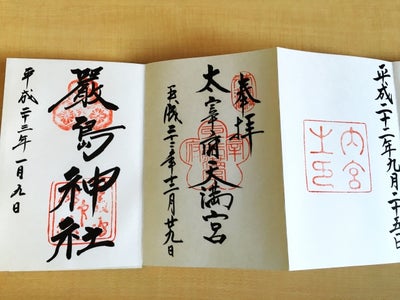 平成二十二年九月二十五日
内宮
之印
奉拝
太宰府天満宮
平成 月廿九日
嚴島神社
平成二十三年一月九日